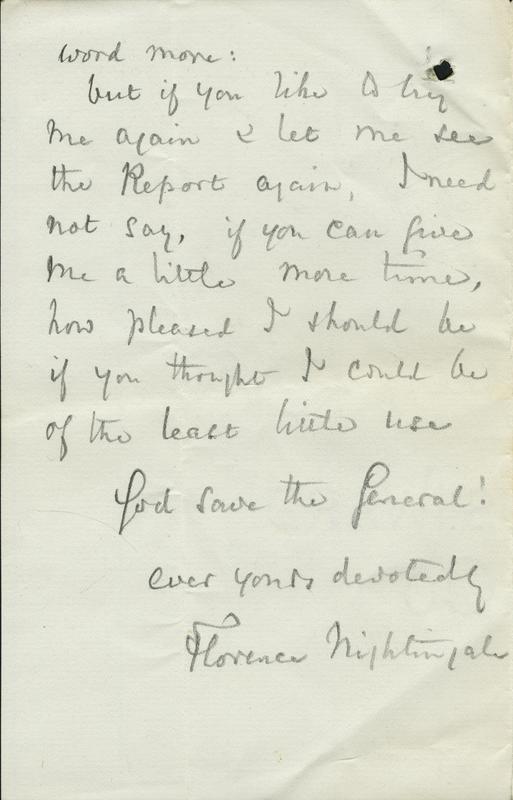 word more:
but if you like to try
me again & let me see
the Report again, I need
not say, if you can give
me a little more time,
how pleased I should be
if you thought I could be
of the least little use
God save the General!
ever yours devotedly
Florence Nightingale